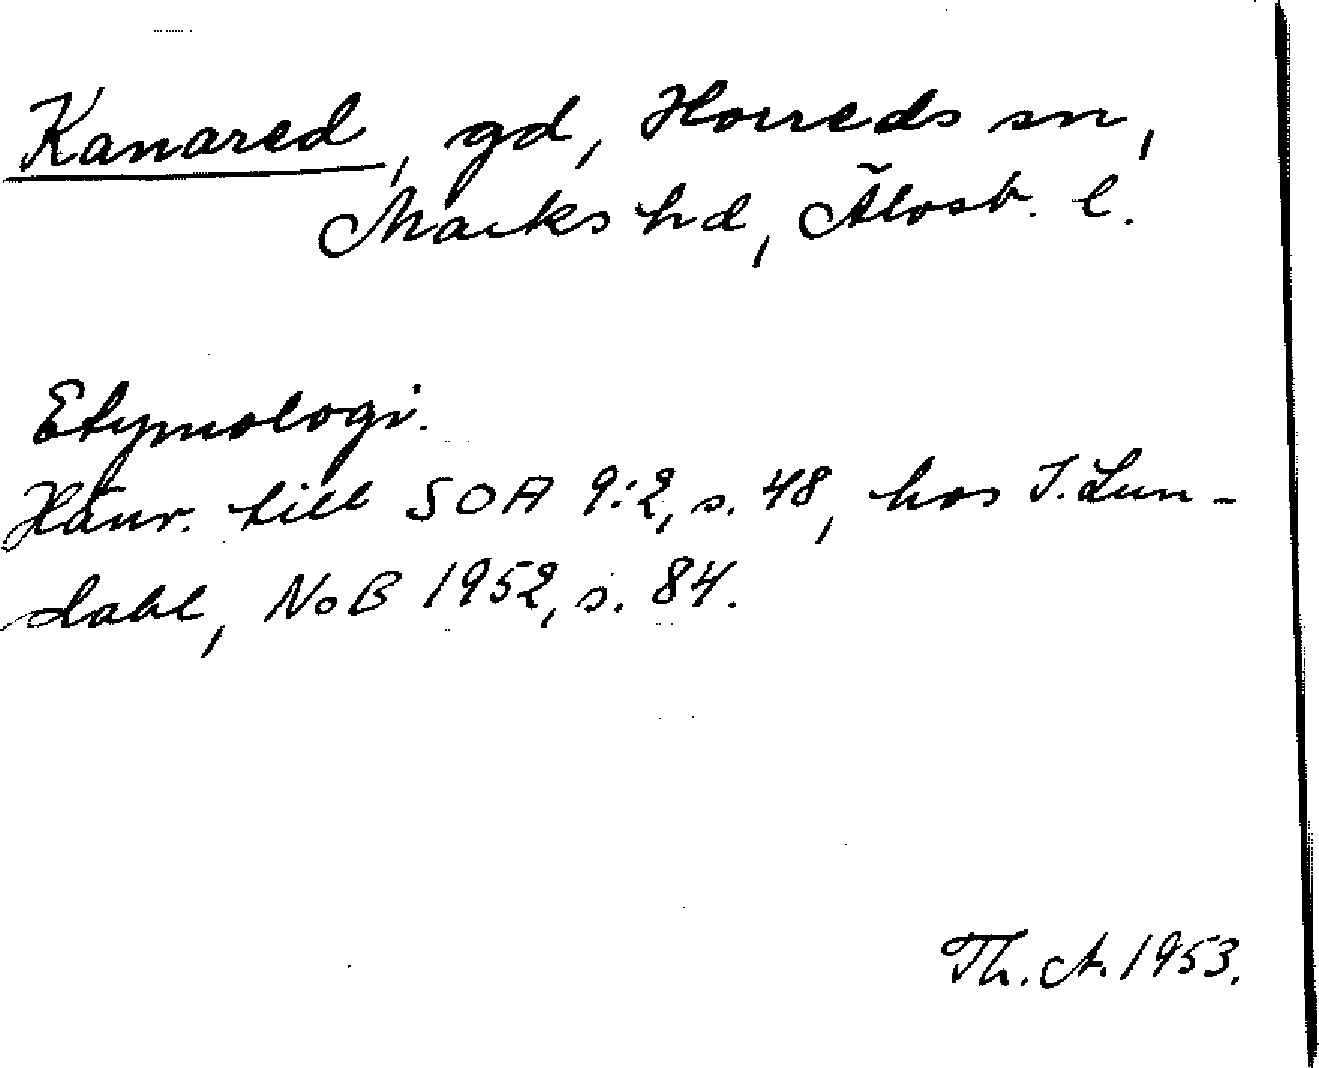 Kanared, gd, Horreds sn,
Marks hd, Älvsb. l.
Etymologi.
Hänv. till SOÄ 9:2, s. 48, hos I. Lun-
dahl, NoB 1952, s. 84.
Th. A. 1953.